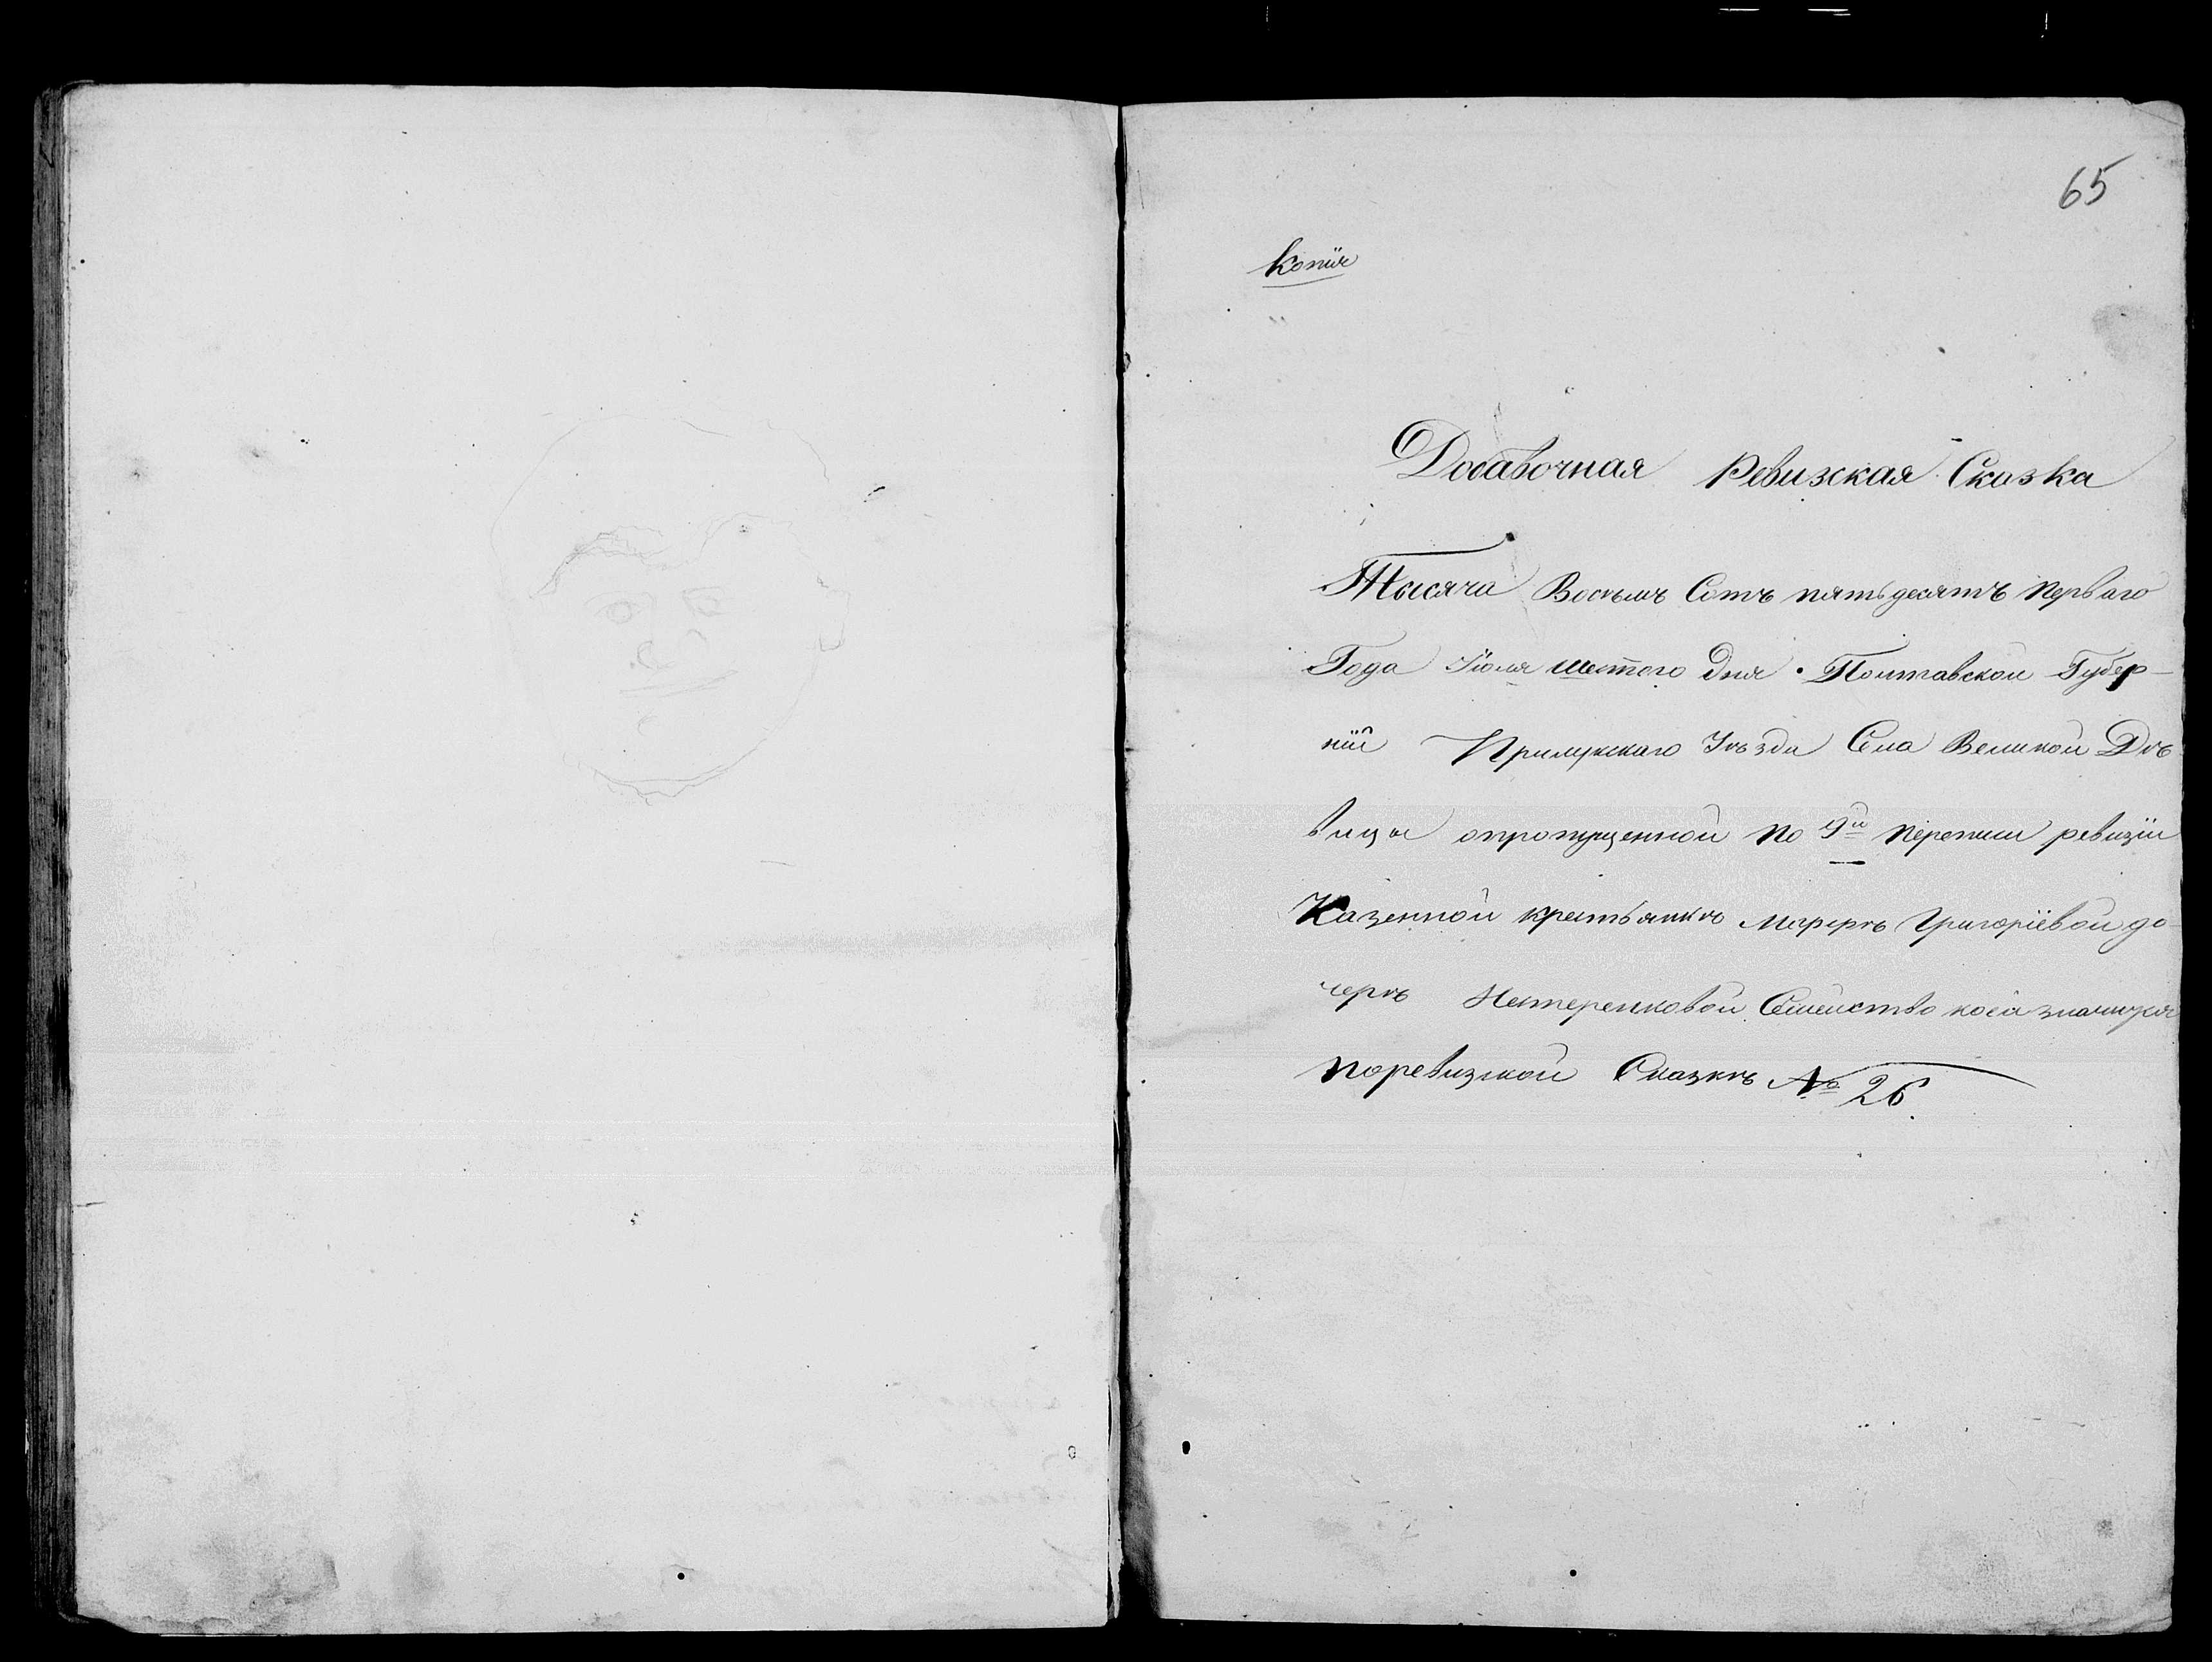 65
Копія
Добавочная Ревизская Сказка
Тысяча Восѣмъ Сотъ пятьдесятъ перваго
Года Іюля шестого Дня. Полтавской Губер-
ніи Прилукскаго Уѣзда Села Великой Дѣ
вицы опропущенной по 9й переписи ревизіи
Казенной крестьянкѣ Марѳѣ Григоріевой до
черѣ Нестеренковой Семейство коей значится
поревизской Сказкѣ № 26.